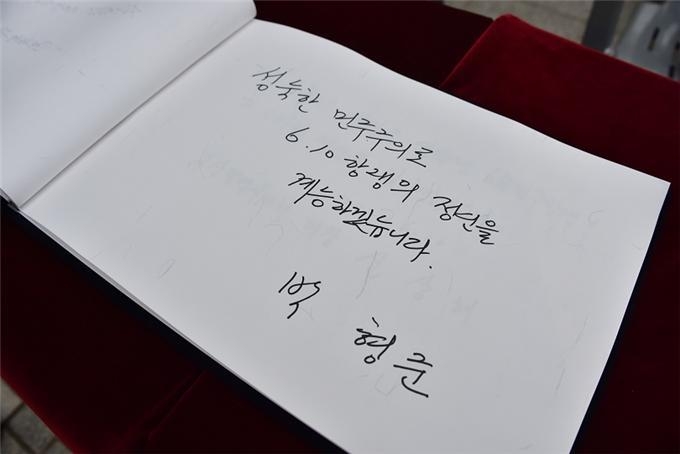 성숙한 민주주의로
6.10 항쟁의 정신을
계승하겠습니다.
박 형준